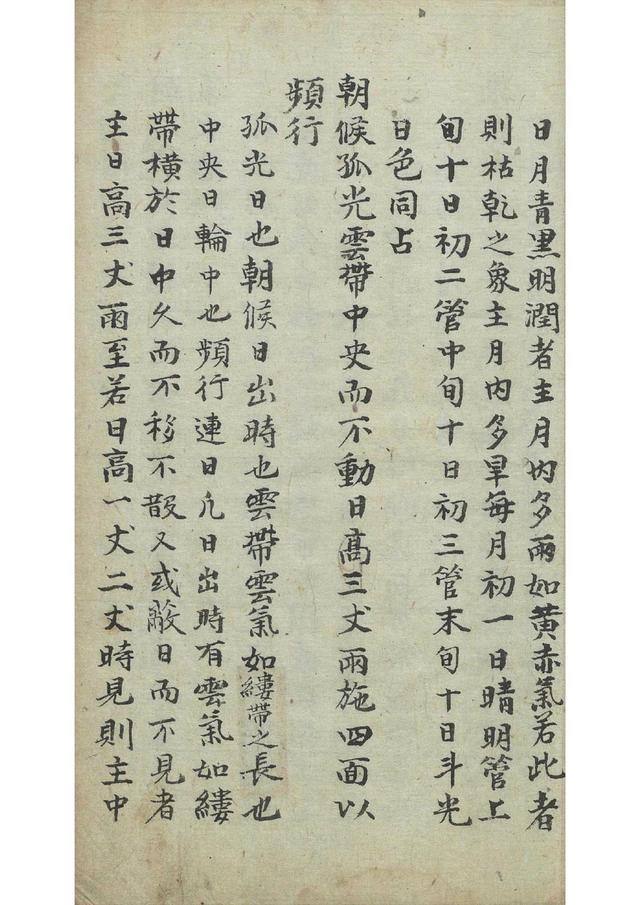 日月青黒明潤者主月内多雨如黃赤氣若此者
則枯乾之象主月内多旱每月初一日晴明管上
旬十日初二管中旬十日初三管末旬十日斗光
日色同占
朝候孤光雲帶中央而不動日高三丈雨施四面以
頻行
孤光日也朝候日出時也雲帶雲氣如縷帶之長也
中央日輪中也頻行連日凡日出時有雲氣如縷
帶橫於日中久而不移不散又或蔽日而不見者
主日高三丈雨至若日高一丈二丈時見則主中